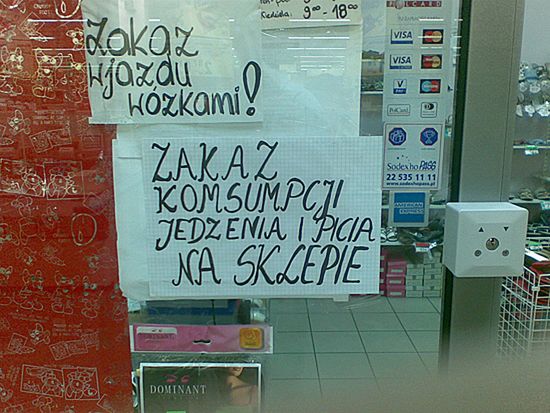 9⁰⁰ - 18⁰⁰
Zakaz
wjazdu
wózkami!
ZAKAZ
KOMSUMPCJI
JEDZENIA I PICIA
NA SKLEPIE
POLCARD
VISA MasterCard
VISA
V PAY
PolCard
Sodexho PASS
22 535 11 11
www.sodexhopass.pl
AMERICAN
EXPRESS
DOMINANT
DOMINANT